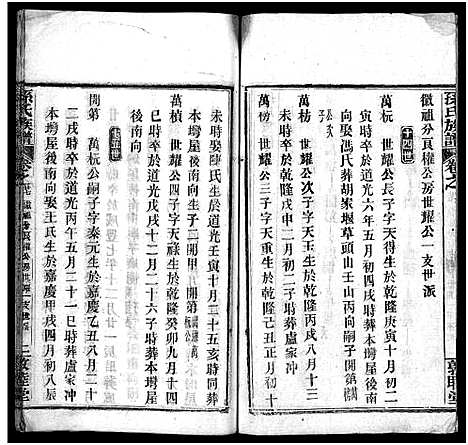 孫氏族譜
卷之
徽祖分貢權公房世耀公一支世派
十四世
萬耘 世耀公長子字天得生於乾隆庚寅十月初二
時卒於道光六年五月初四戌時葬本塆屋後南
向娶馮氏葬胡家堰草頭山壬山丙向子開第
萬榜 世耀公次子字天玉生於乾隆丙戌八月十三
時卒於乾隆戊申二月初二子時
萬楞 世耀公三子字天重生於乾隆己丑正月初十
敦睦堂
亥時娶陳氏生於道光壬寅十月二十五亥時同葬
本塆屋後南向生子一開甲
萬楨 世耀公四子字天祿生於乾隆癸卯九月十四
巳時卒於道光戊戌十二月二十六子時葬本塆屋
後南向
十五世
開第 萬耘公嗣子字泰元生於嘉慶乙丑八月二十
三戌時卒於道光丙午五月三十一巳時葬盧家冲
本塆屋後南向娶王氏生於嘉慶甲戌四月初八辰
孫氏族譜
敦睦堂